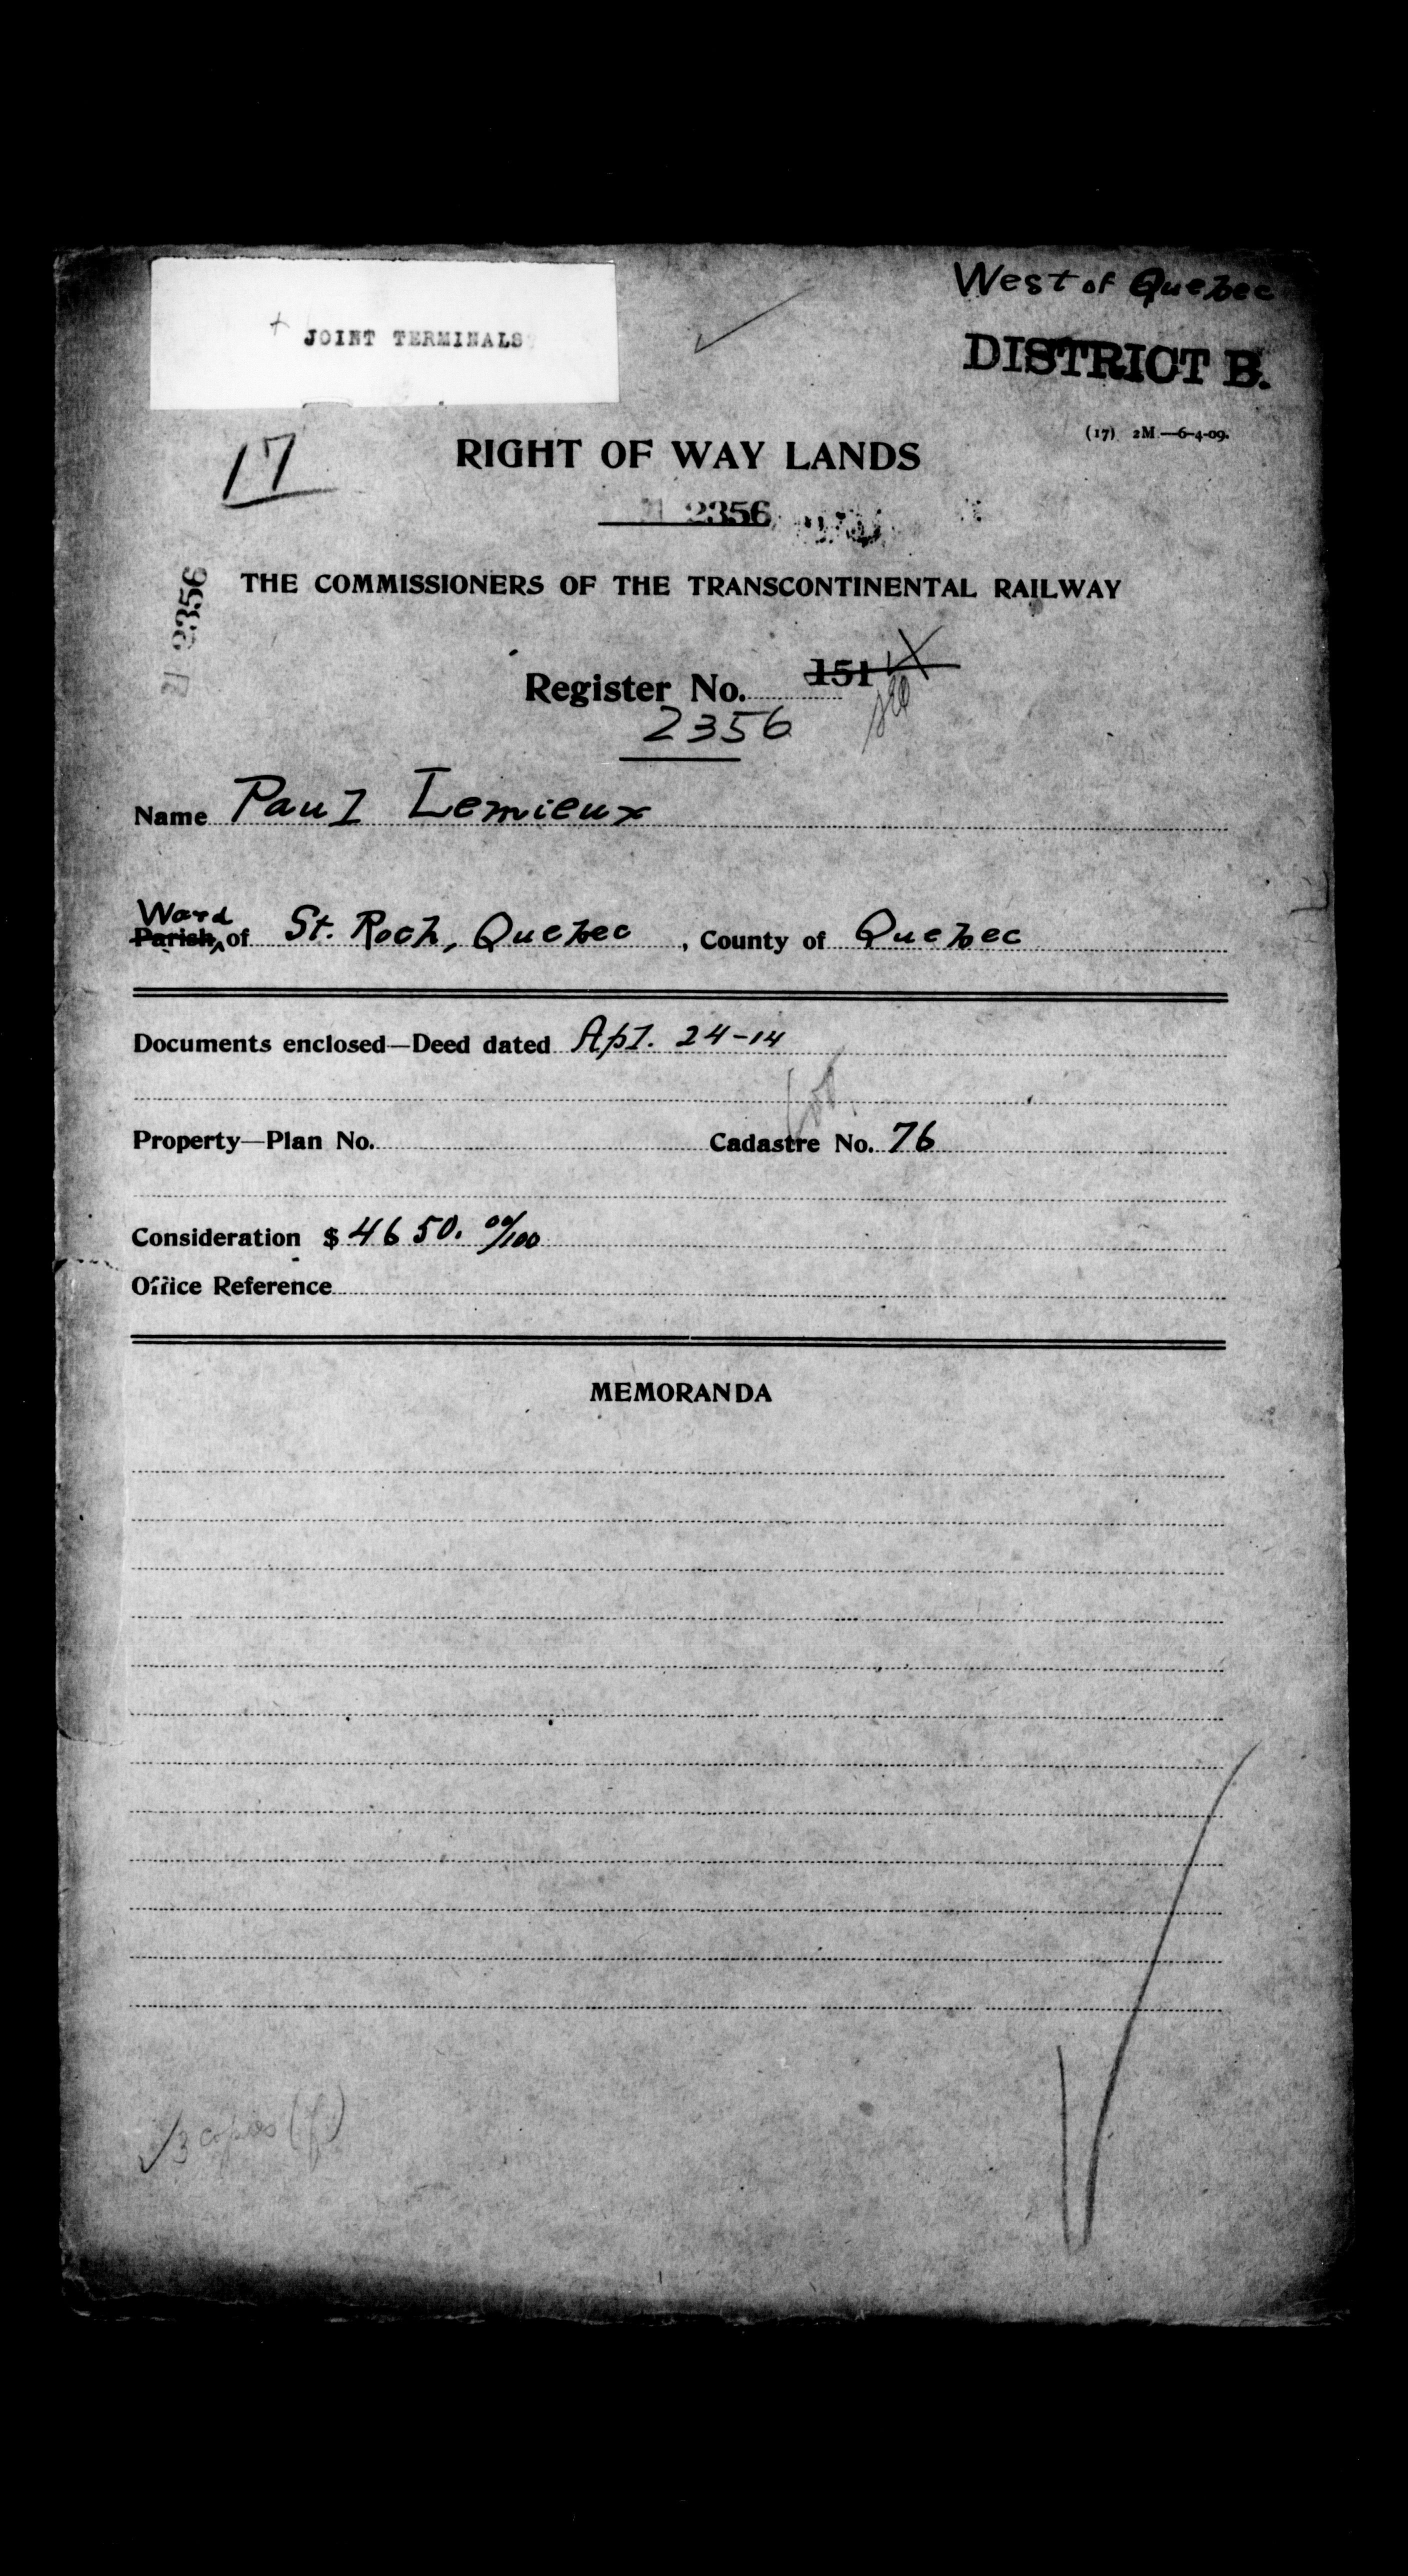 West of Quebec
+ JOINT TERMINALS
DISTRICT B.
(17) 2M.—6-4-09.
17
RIGHT OF WAY LANDS
2356
2356
THE COMMISSIONERS OF THE TRANSCONTINENTAL RAILWAY
Register No. 151
2356
Name Paul Lemieux
Ward
Parish of St. Roch, Quebec, County of Quebec
Documents enclosed—Deed dated Apl. 24-14
Property—Plan No. Cadastre No. 76
Consideration $ 4650. 00/100
Office Reference
MEMORANDA
3 copies (f)